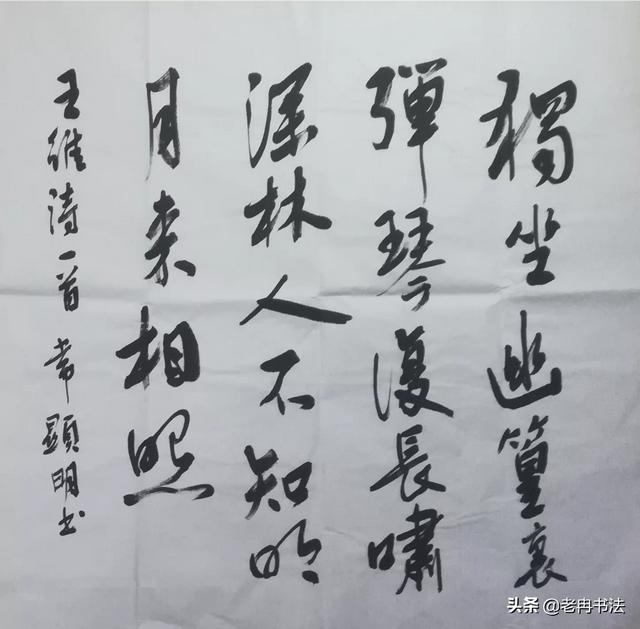 獨坐幽篁裏
彈琴復長嘯
深林人不知明
月来相照
王維詩一首 常顯明书
头条 @老冉书法